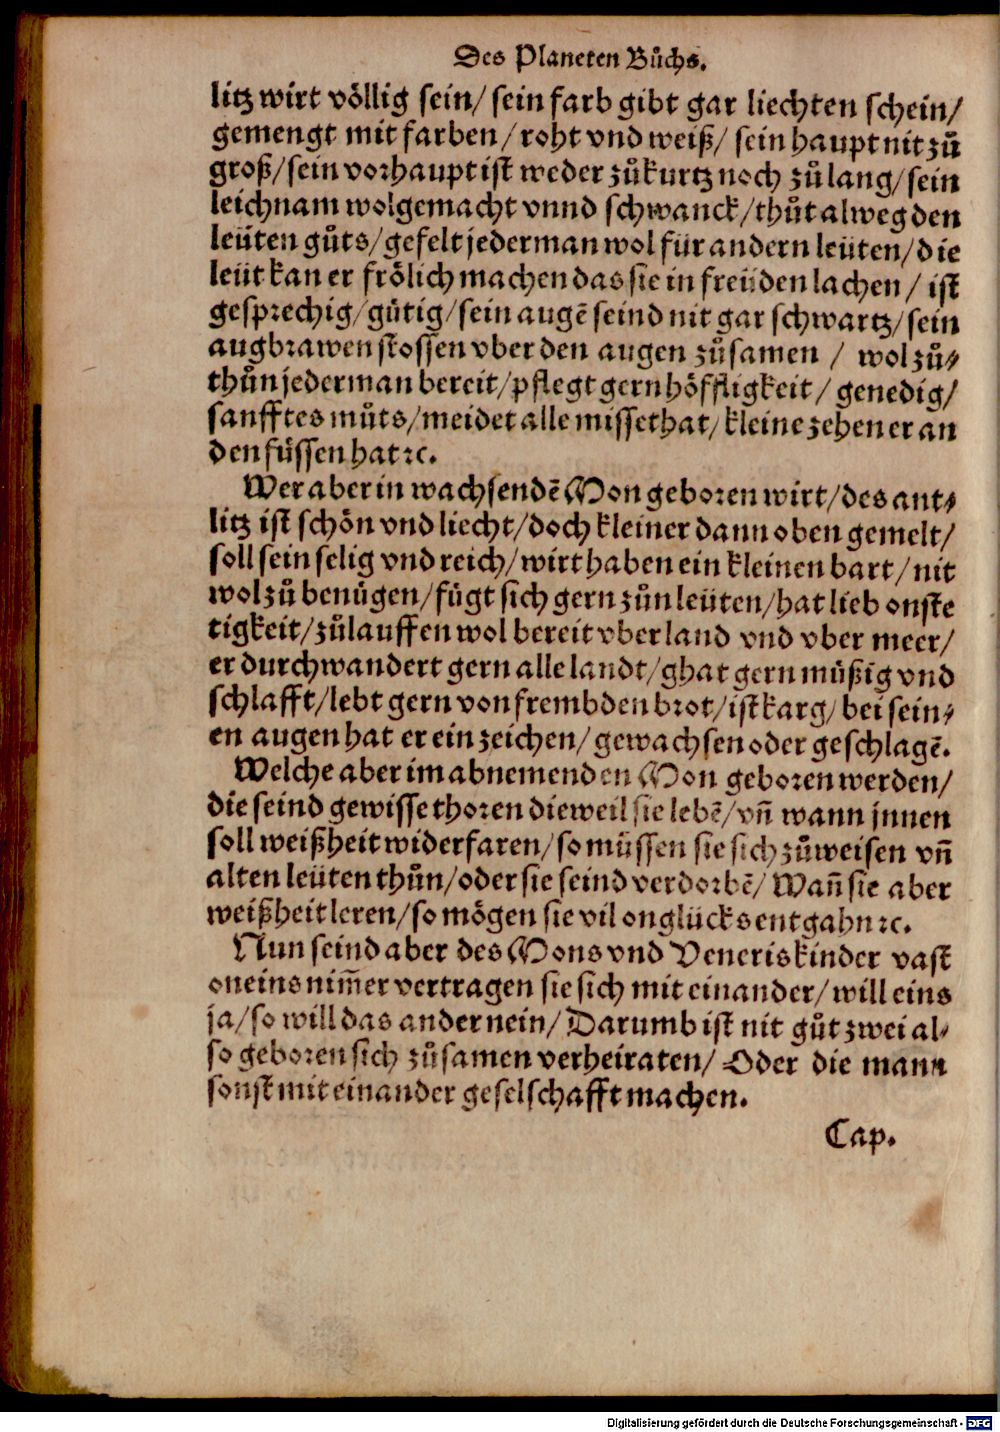 Des Planeten Bůchs.
litz wirt völlig sein/ sein farb gibt gar liechten schein/
gemengt mit farben/ roht vnd weiß/ sein haupt nit zů
groß/ sein vorhaupt ist weder zůkurtz noch zů lang/ sein
leichnam wolgemacht vnnd schwanck/ thůt alweg den
leüten gůts/ gefelt jederman wol für andern leüten/ die
leüt kan er frölich machen das sie in freüden lachen/ ist
gesprechig/ gütig/ sein augẽ seind nit gar schwartz/ sein
augbrawen stossen vber den augen zůsamen / wol zů⸗
thůn jederman bereit/ pflegt gern höffligkeit/ genedig/
sanfftes můts/ meidet alle missethat/ kleine zehen er an
den füssen hat ꝛc.
Wer aber in wachsendẽ Mon geboren wirt/ des ant⸗
litz ist schön vnd liecht/ doch kleiner dann oben gemelt/
soll sein selig vnd reich/ wirt haben ein kleinen bart/ nit
wol zů benügen/ fügt sich gern zůn leüten/ hat lieb onste
tigkeit/ zůlauffen wol bereit vber land vnd vber meer/
er durchwandert gern alle landt/ ghat gern müßig vnd
schlafft/ lebt gern von frembden brot/ ist karg/ bei sein⸗
en augen hat er ein zeichen/ gewachsen oder geschlagẽ.
Welche aber im abnemenden Mon geboren werden/
die seind gewisse thoren dieweil sie lebẽ/ vñ wann jnnen
soll weißheit widerfaren/ so müssen sie sich zůweisen vñ
alten leüten thůn/ oder sie seind verdorbẽ/ Wañ sie aber
weißheit leren/ so mögen sie vil onglücks entgahn ꝛc.
Nun seind aber des Mons vnd Veneris kinder vast
oneins nim̃er vertragen sie sich mit einander/ will eins
ja/ so will das ander nein/ Darumb ist nit gůt zwei al⸗
so geboren sich zůsamen verheiraten/ Oder die mann
sonst mit einander geselschafft machen.
Cap.
Digitalisierung gefördert durch die Deutsche Forschungsgemeinschaft - DFG